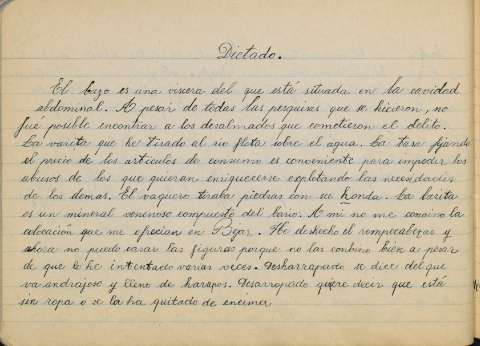 Dictado.
El bazo es una viscera del que está situada en la cavidad
abdominal. A pesar de todas las pesquisas que se hicieron, no
fué posible encontrar a los desalmados que cometieron el delito.
La vareta que he tirado al rio flota sobre el agua. La tasa fijando
el precio de los articulos de consumo es conveniente para impedir los
abusos de los que quieran enriquecerse explotando las necesidades
de los demas. El vaquero tiraba piedras con su honda. La barita
es un mineral venenoso compuesto del bario. A mi no me convino la
colocación que me ofrecian en Bejar. He deshecho el rompecabezas y
ahora no puedo casar las figuras porque no las combino bien a pesar
de que lo he intentado varias veces. Desharrapado se dice del que
va andrajoso y lleno de harapos. Desarropado quiere decir que está
sin ropa o se la ha quitado de encima